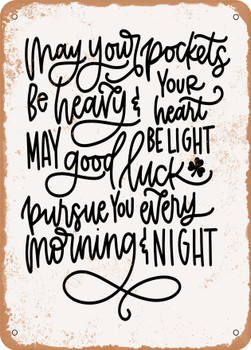 may your pockets
Be heavy & YOUR heart
MAY BE LIGHT
good luck
pursue YOU every
morning & NIGHT